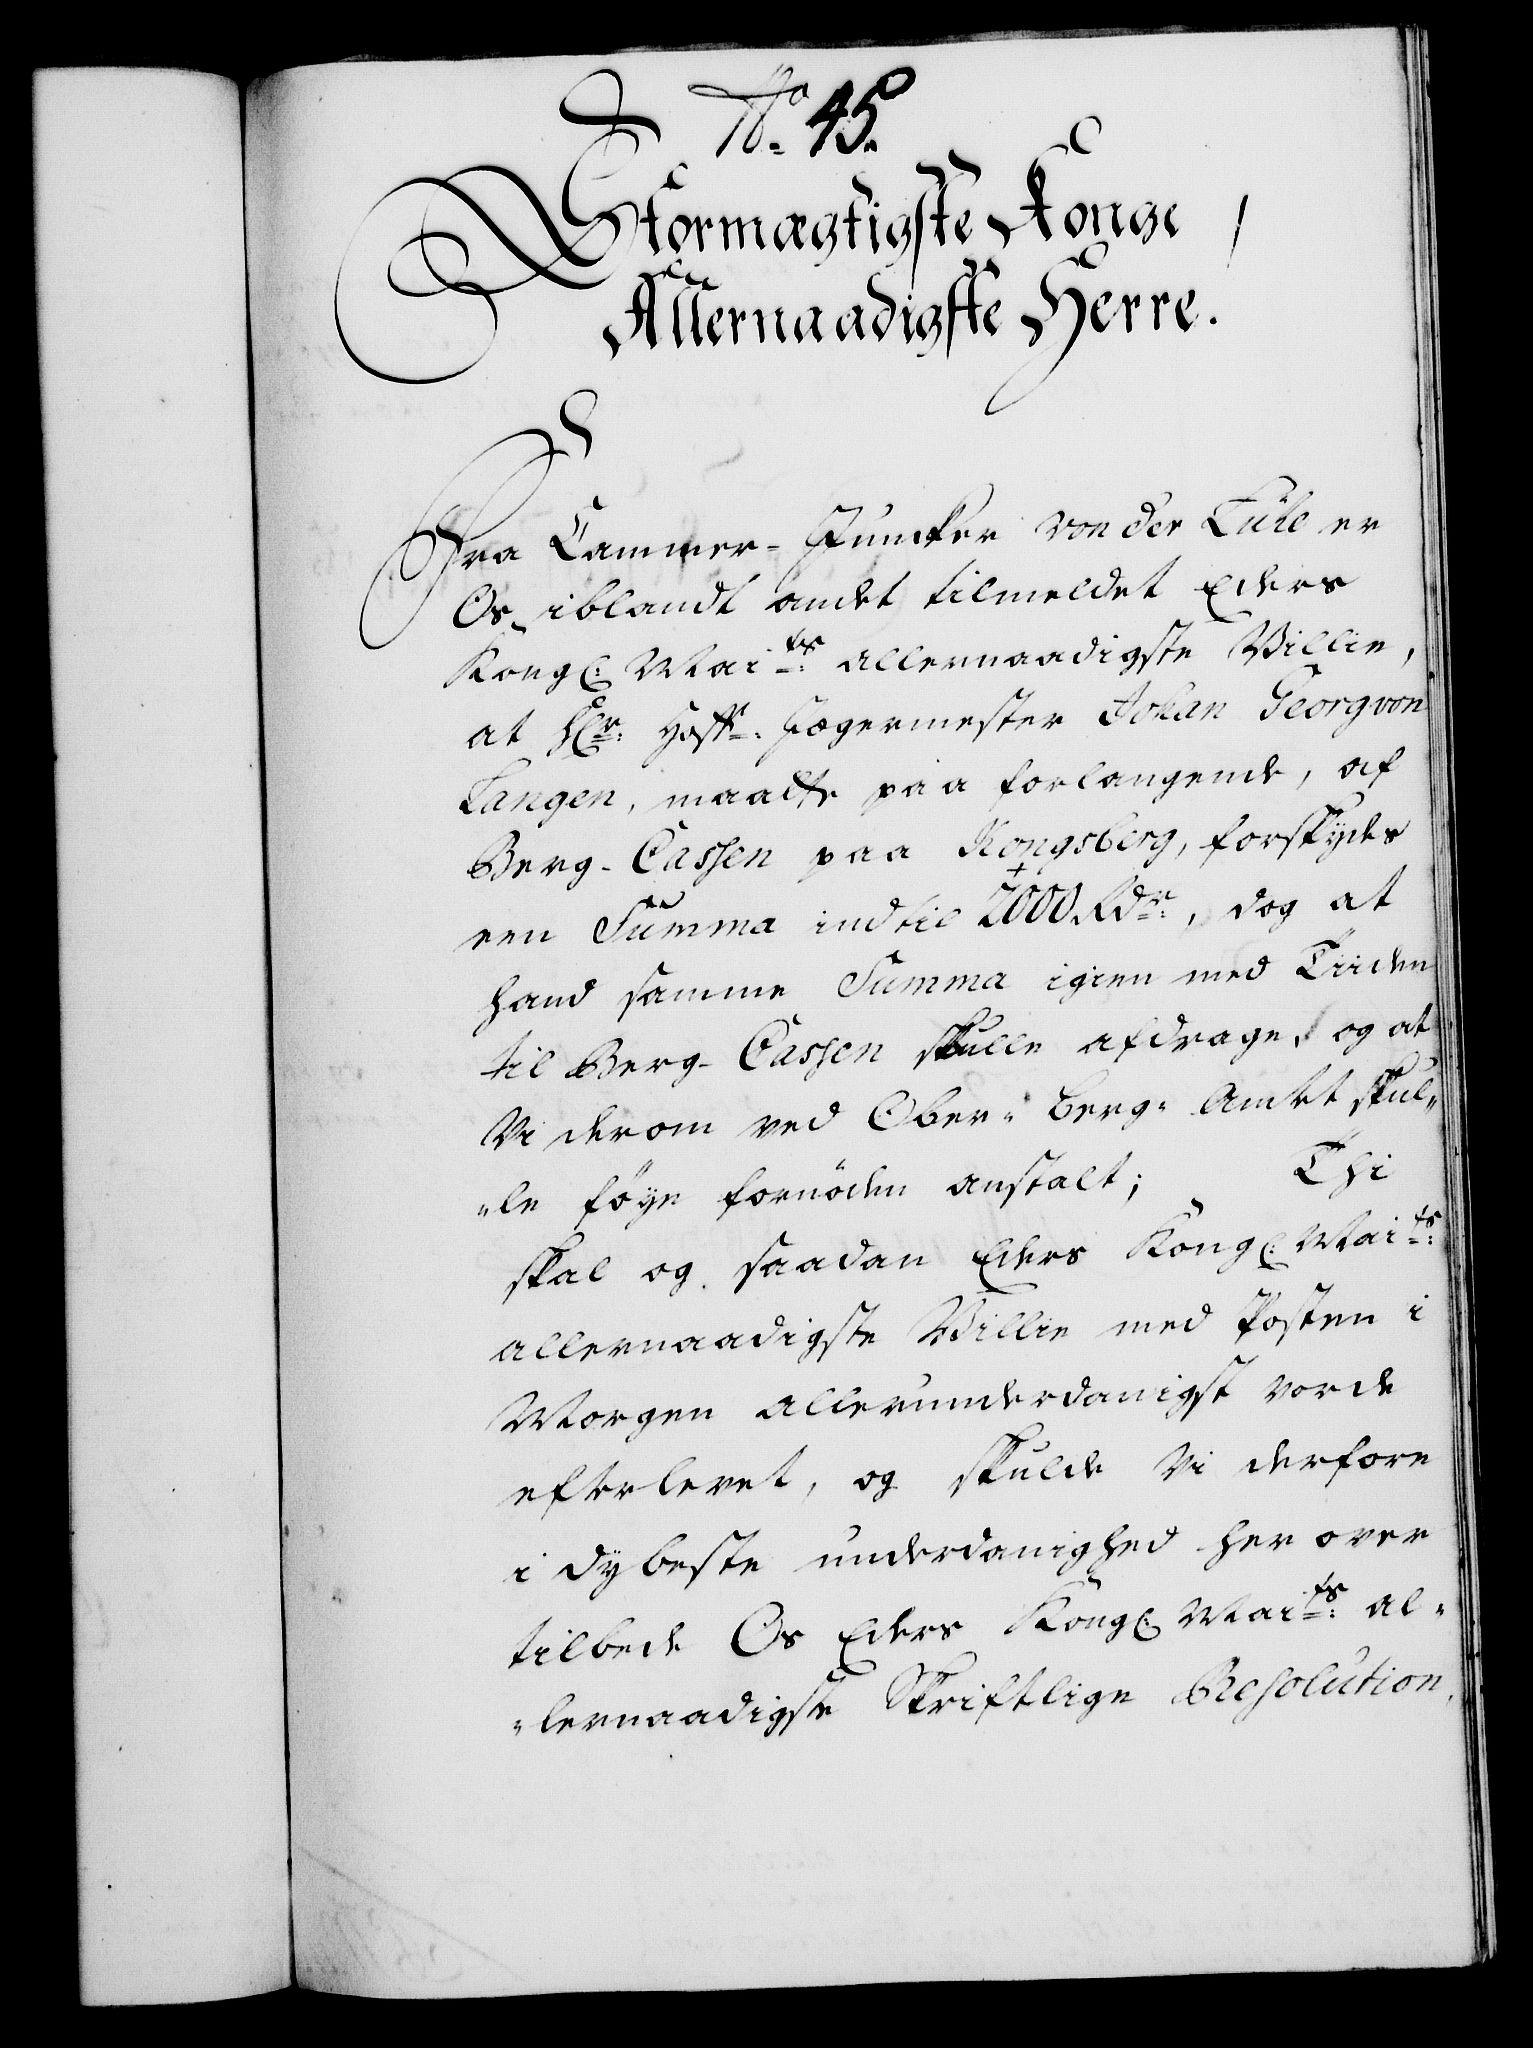 No. 45.
Stormægtigste Konge /
Allernaadigste Herre.
Fra Cammer-Juncker von der Lühe er
Os iblandt andet tilmeldet Eders
Kongl: Maits: allernaadigste Villie,
at Hr: Hoff-Jægermester Johan Georg von
Langen, maatte paa forlangende, af
Berg-Cassen paa Kongsberg, forskydes
een Summa indtil 2000 Rdr:, dog at
hand samme Summa igien med Tiiden
til Berg-Cassen skulle afdrage, og at
Vi derom ved Ober-Berg-Amtet skul-
-le føye fornöden anstalt; Thi
skal og saadan Eders Kongl: Maits:
allernaadigste Villie med Posten i
Morgen allerunderdanigst vorde
efterlevet, og skulde Vi derfore
i dybeste underdanighed her over
tilbede Os Eders Kongl: Maits: al-
-lernaadigste Skriftlige Resolution.